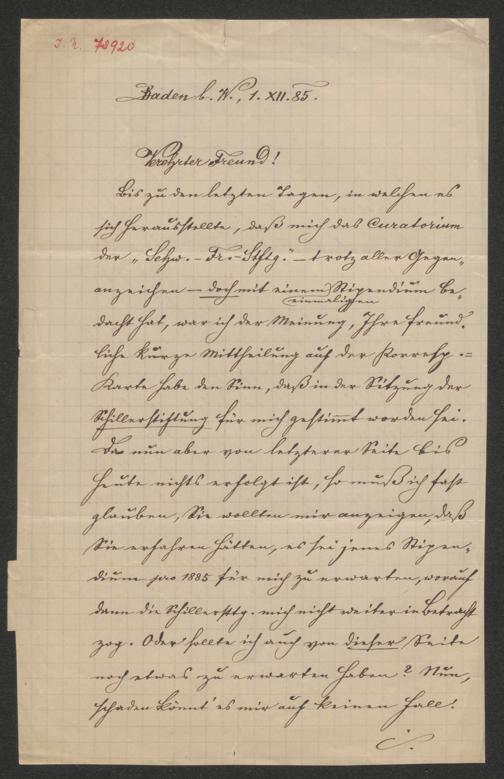 J. N. 78920
Baden b. W., 1. XII. 85.
Verehrter Freund!
Bis zu den letzten Tagen, in welchen es
sich herausstellte, daß mich das Curatorium
der „Schw.-Fr.-Stftg." – trotz aller Gegen-
anzeichen – doch mit einem Stipendium be-
einmaligen
dacht hat, war ich der Meinung, Ihre freund-
liche kurze Mittheilung auf der Korresp.-
Karte habe den Sinn, daß in der Sitzung der
Schillerstiftung für mich gestimmt worden sei.
Da nun aber von letzterer Seite bis
heute nichts erfolgt ist, so muß ich fast
glauben, Sie wollten mir anzeigen, daß
Sie erfahren hätten, es sei jenes Stipen-
dium pro 1885 für mich zu erwarten, worauf
dann die Schillersttg. mich nicht weiter in Betracht
zog. Oder sollte ich auch von dieser Seite
noch etwas zu erwarten haben? Nun,
schaden könnt' es mir auf keinen Fall.